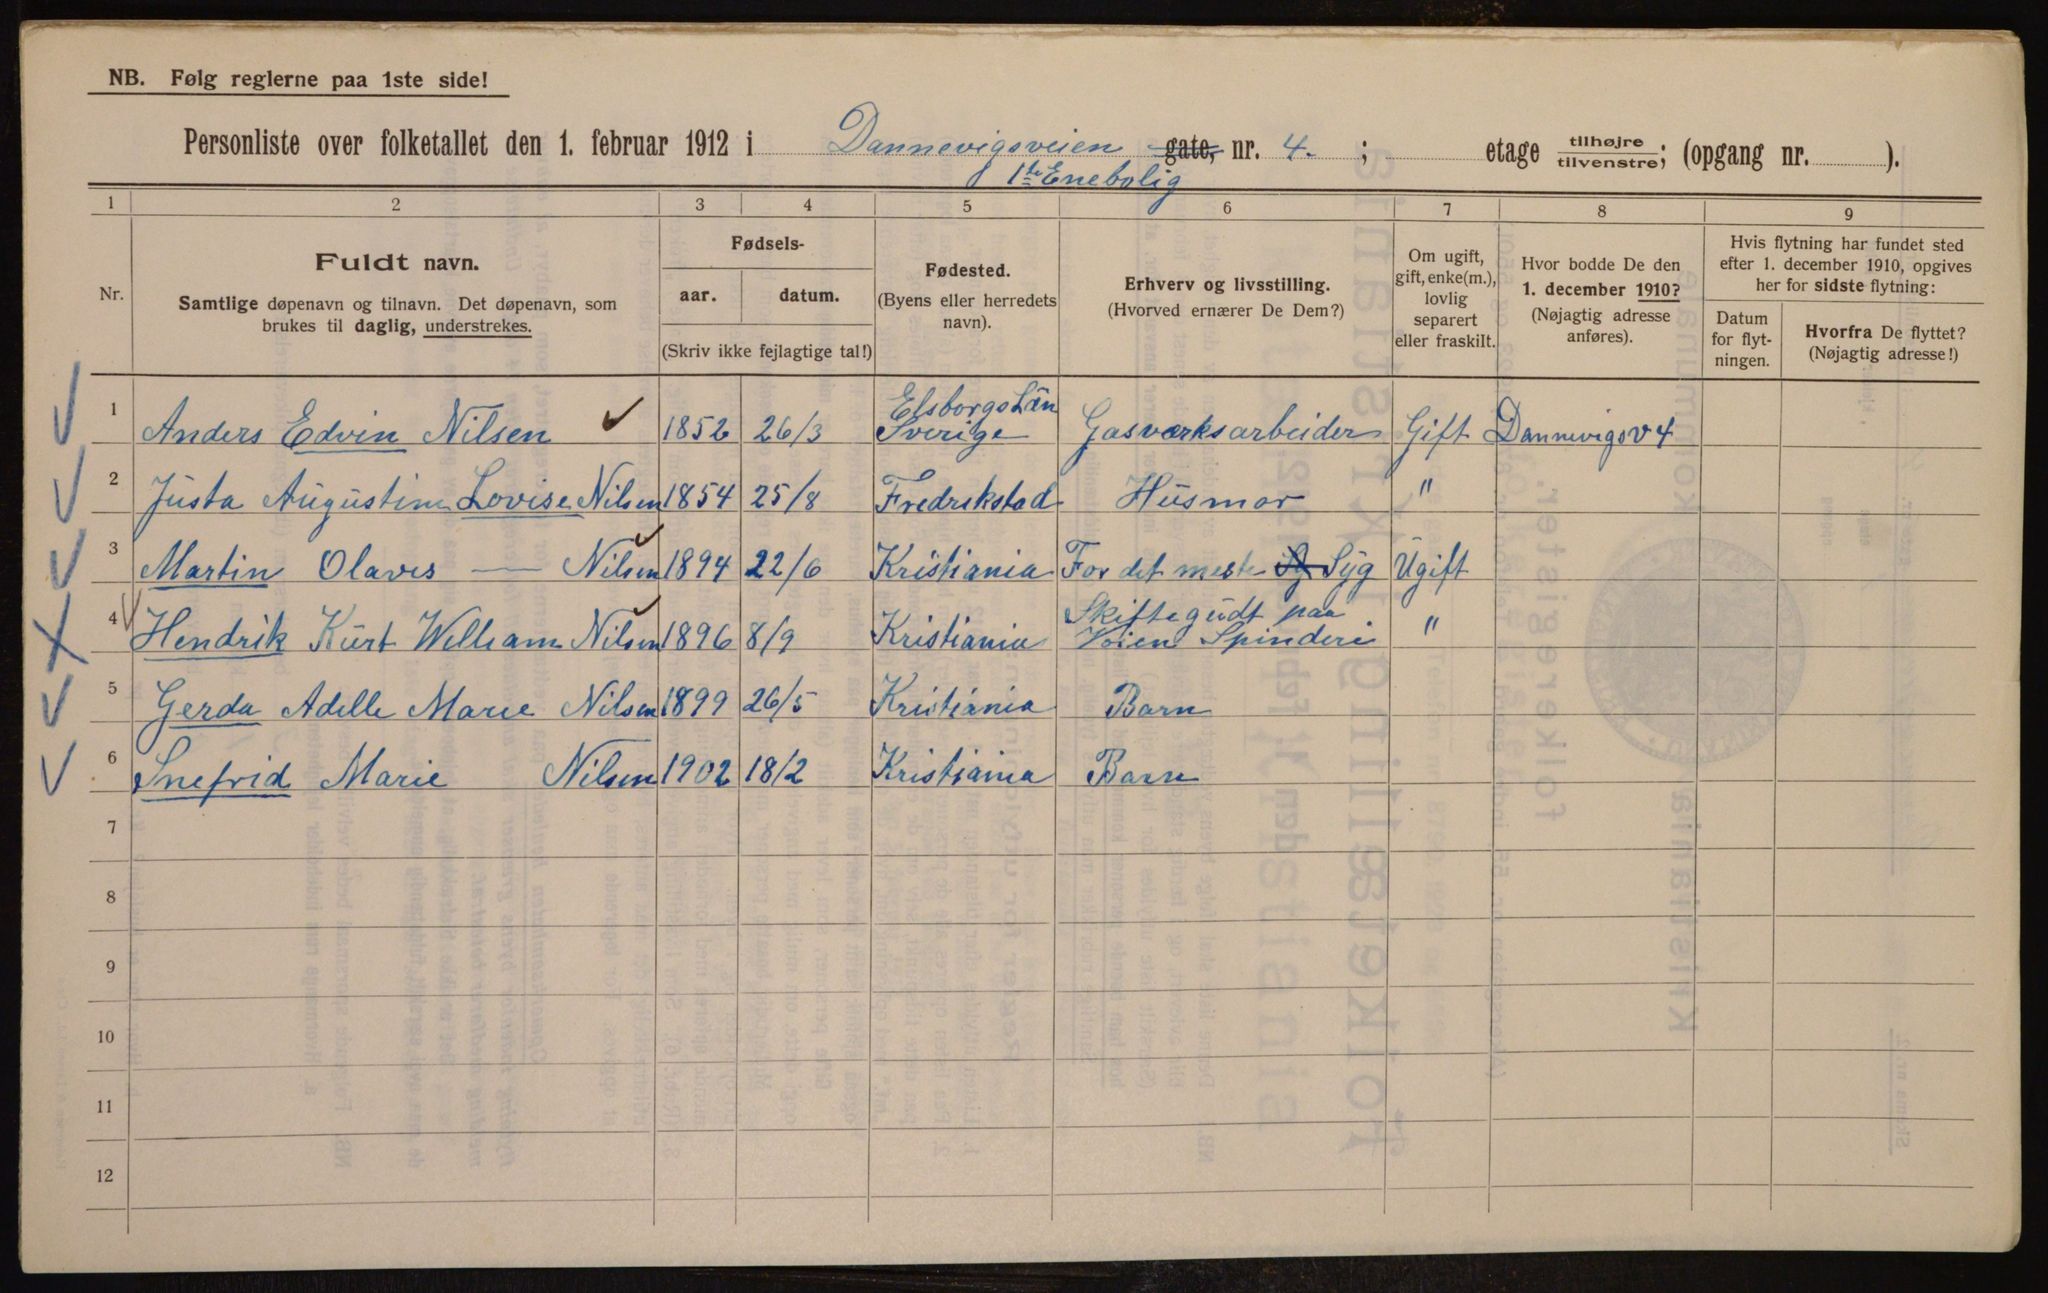 NB. Følg reglerne paa 1ste side!
Personliste over folketallet den 1. februar 1912 i Dannevigsveien gate, nr. 4. ; etage tilhøjre/tilvenstre; (opgang nr. ).
1ste Enebolig
1 2 3 4 5 6 7 8 9
Nr.
Fuldt navn.
Samtlige døpenavn og tilnavn. Det døpenavn, som
brukes til daglig, understrekes.
Fødsels-
aar. datum.
(Skriv ikke fejlagtige tal!)
Fødested.
(Byens eller herredets
navn).
Erhverv og livsstilling.
(Hvorved ernærer De Dem?)
Om ugift,
gift, enke(m.),
lovlig
separert
eller fraskilt.
Hvor bodde De den
1. december 1910?
(Nøjagtig adresse
anføres).
Hvis flytning har fundet sted
efter 1. december 1910, opgives
her for sidste flytning:
Datum
for flyt-
ningen.
Hvorfra De flyttet?
(Nøjagtig adresse!)
1 Anders Edvin Nilsen 1852 26/3 Elsborgs Län Sverige Gasværksarbeider Gift Dannevigsv 4
2 Justa Augustine Lovise Nilsen 1854 25/8 Fredrikstad Husmor "
3 Martin Olaves — Nilsen 1894 22/6 Kristiania For det meste Sy Syg Ugift
4 Hendrik Kurt Welham Nilsen 1896 8/9 Kristiania Skiftegudt paa Voien Spinderi "
5 Gerda Adelle Marie Nilsen 1899 26/5 Kristiania Barn
6 Snefrid Marie Nilsen 1902 18/2 Kristiania Barn
7
8
9
10
11
12